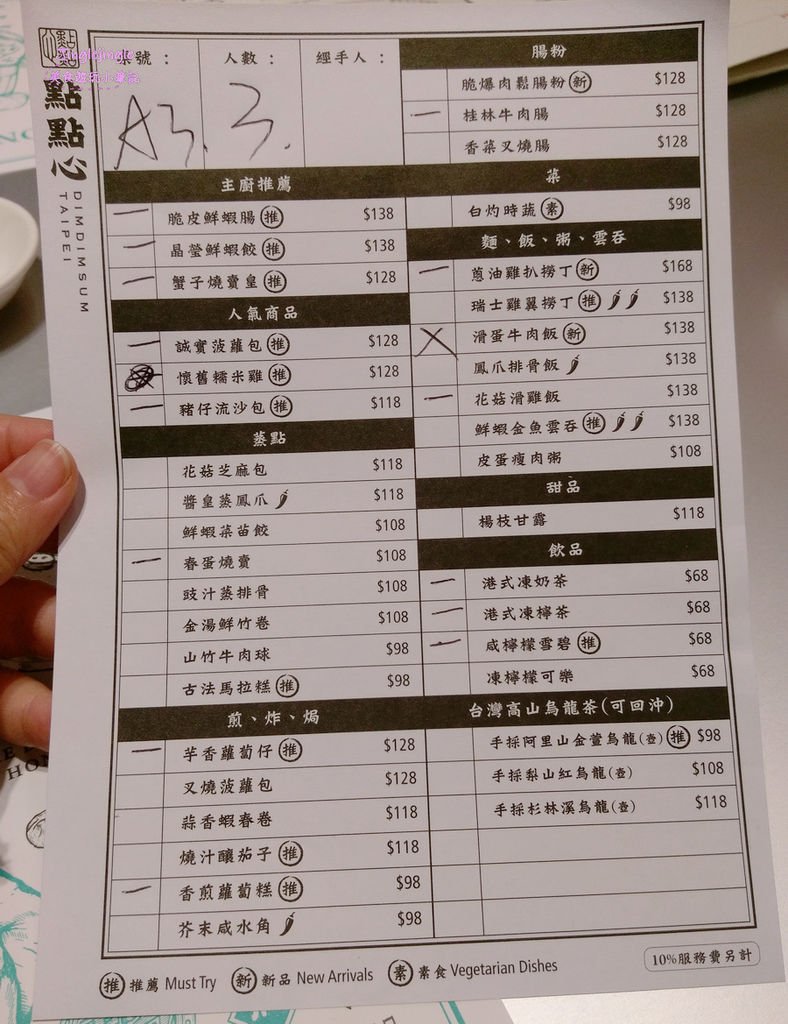 點點心
DIMDIMSUM
TAIPEI
Xinglejingle
美食遊玩小筆記
號：
人數：
經手人：
A3.
3.
主廚推薦
脆皮鮮蝦腸 推 $138
晶瑩鮮蝦餃 推 $138
蟹子燒賣皇 推 $128
人氣商品
誠實菠蘿包 推 $128
懷舊糯米雞 推 $128
豬仔流沙包 推 $118
蒸點
花菇芝麻包 $118
醬皇蒸鳳爪 $118
鮮蝦菜苗餃 $108
春蛋燒賣 $108
豉汁蒸排骨 $108
金湯鮮竹卷 $108
山竹牛肉球 $98
古法馬拉糕 推 $98
煎、炸、焗
芋香蘿蔔仔 推 $128
叉燒菠蘿包 $128
蒜香蝦春卷 $118
燒汁釀茄子 推 $118
香煎蘿蔔糕 推 $98
芥末咸水角 $98
腸粉
脆爆肉鬆腸粉 新 $128
桂林牛肉腸 $128
香菜叉燒腸 $128
菜
白灼時蔬 素 $98
麵、飯、粥、雲吞
蔥油雞扒撈丁 新 $168
瑞士雞翼撈丁 推 $138
滑蛋牛肉飯 新 $138
鳳爪排骨飯 $138
花菇滑雞飯 $138
鮮蝦金魚雲吞 推 $138
皮蛋瘦肉粥 $108
甜品
楊枝甘露 $118
飲品
港式凍奶茶 $68
港式凍檸茶 $68
咸檸檬雪碧 推 $68
凍檸檬可樂 $68
台灣高山烏龍茶(可回沖)
手採阿里山金萱烏龍(壺) 推 $98
手採梨山紅烏龍(壺) $108
手採杉林溪烏龍(壺) $118
推 推薦 Must Try 新 新品 New Arrivals 素 素食 Vegetarian Dishes
10%服務費另計